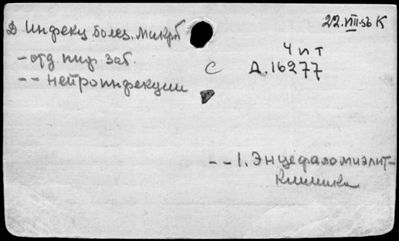 Д Инфекц болез. Микрб
22.VIII-56 К
-отд. инф. заб.
4 п т
С Д.16277
-- нейроинфекции
-- 1. Энцефаломиэлит-
клиника